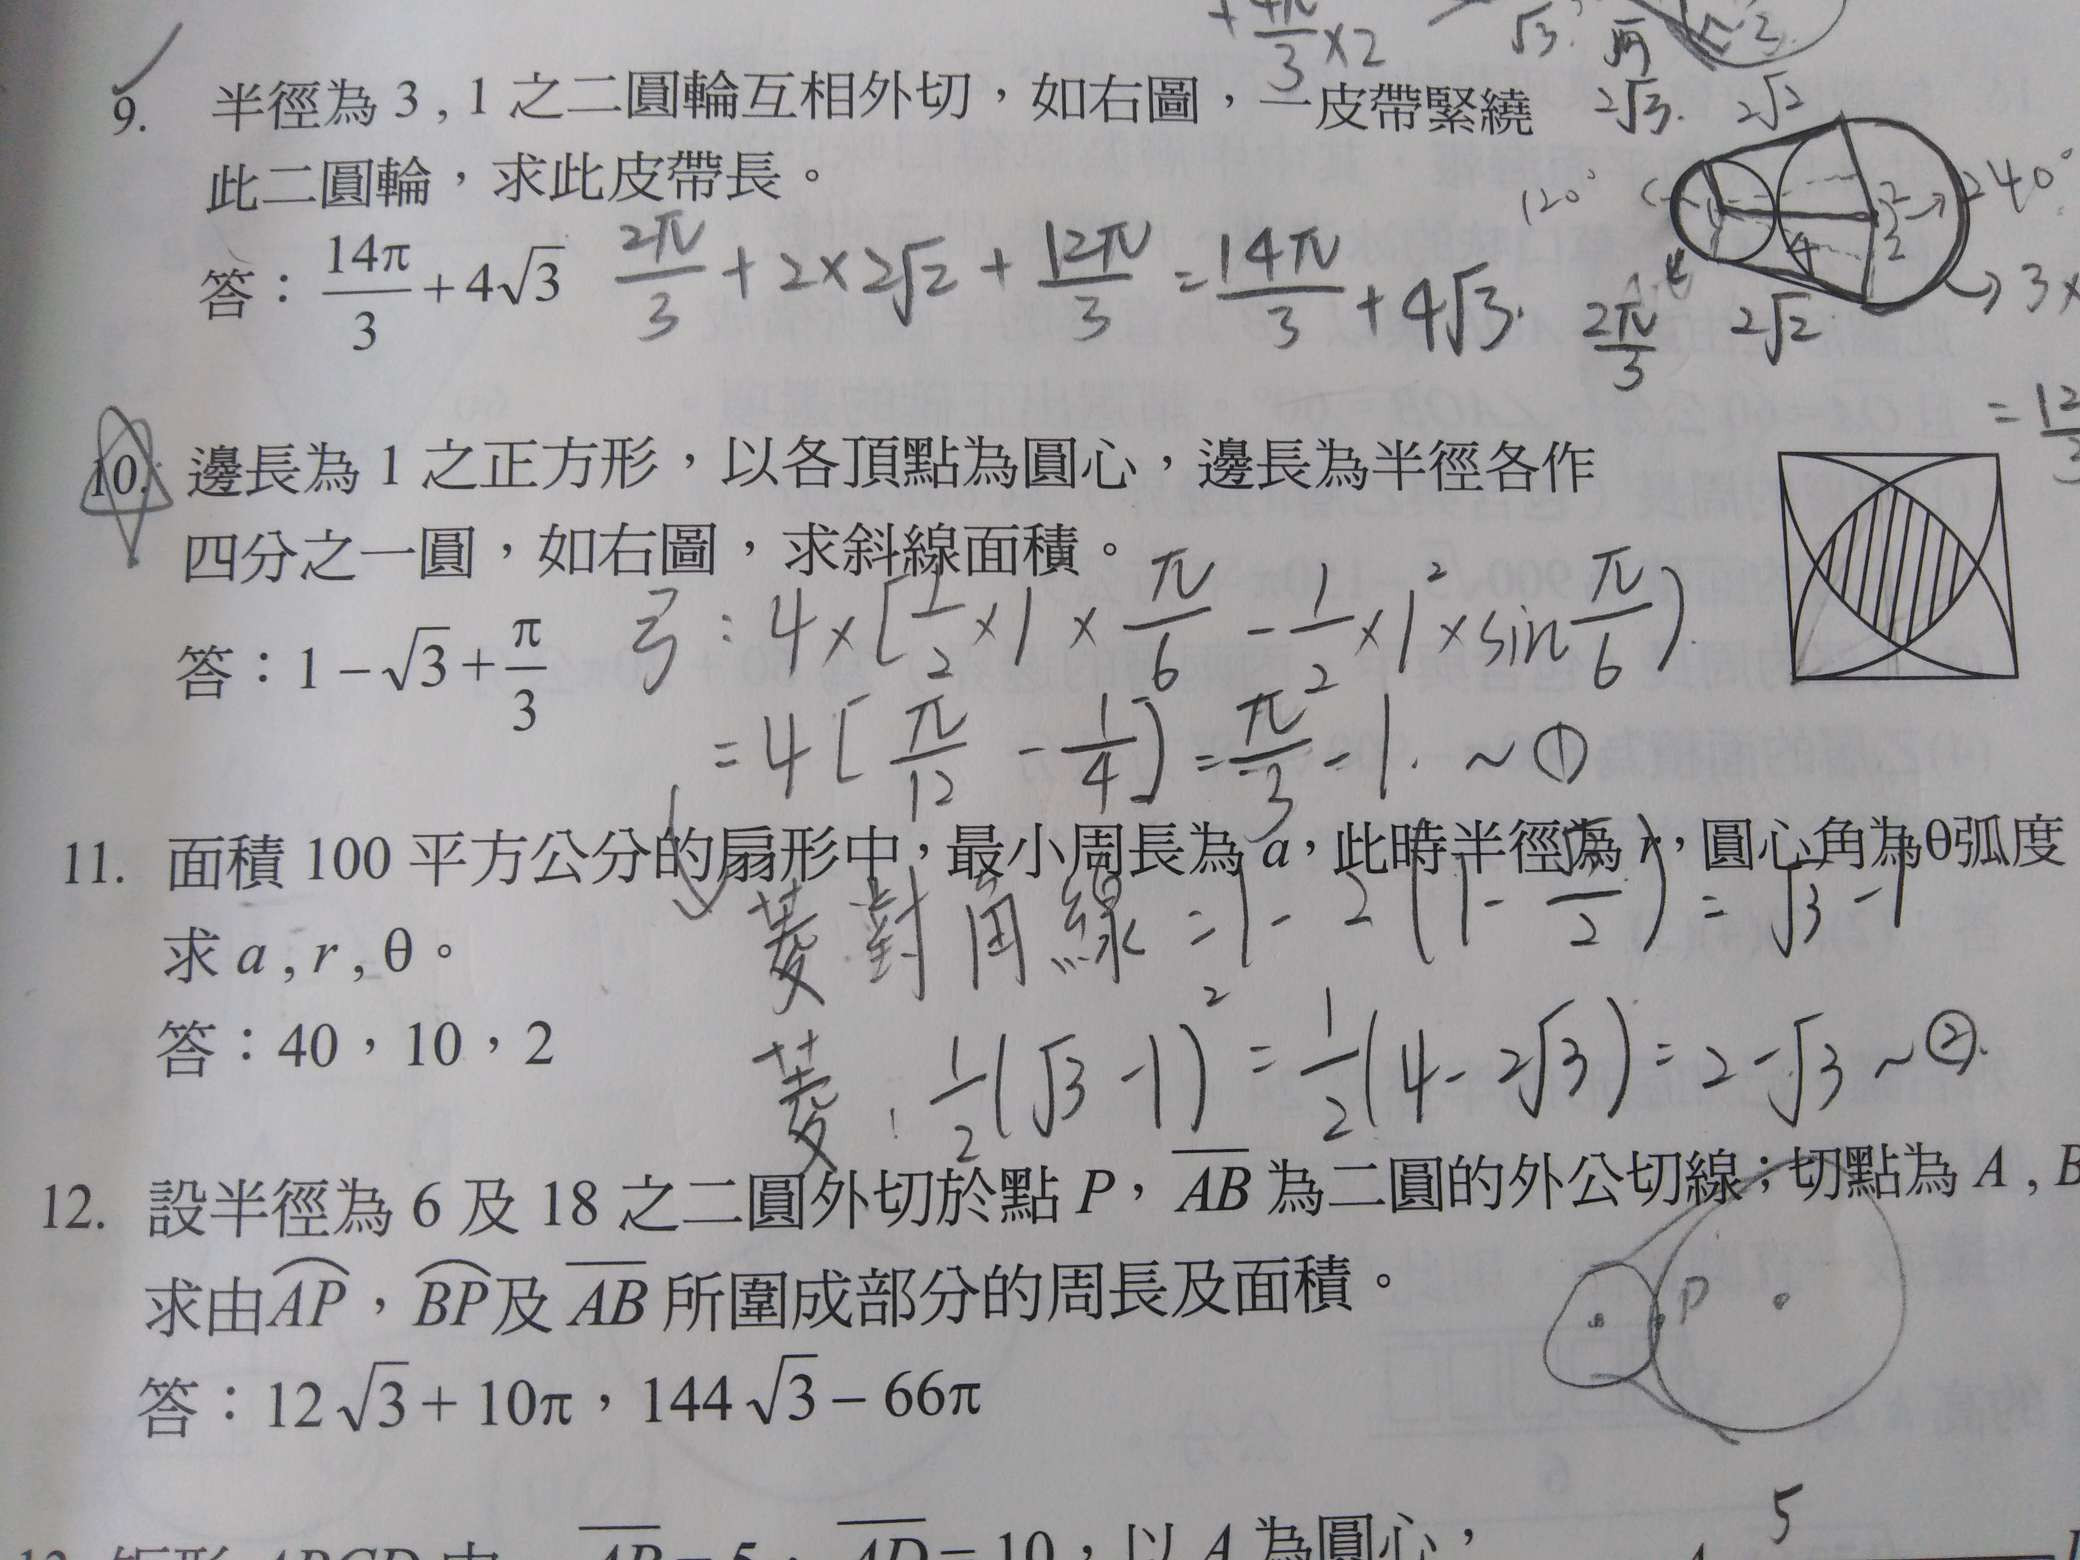 + 4π/3 × 2
√3
2√3. 2√2
9. 半徑為 3 , 1 之二圓輪互相外切，如右圖，一皮帶緊繞
此二圓輪，求此皮帶長。
120° 240°
4
答：14π/3 + 4√3 2π/3 + 2×2√2 + 12π/3 = 14π/3 + 4√3. 2π/3 2√2 3×
= 12/3
10. 邊長為 1 之正方形，以各頂點為圓心，邊長為半徑各作
四分之一圓，如右圖，求斜線面積。
答：1 − √3 + π/3 弓：4×[1/2×1×π/6 − 1/2×1²×sin π/6)
= 4[π/12 − 1/4] = π/3 − 1. ~ ①
11. 面積 100 平方公分的扇形中，最小周長為 a，此時半徑為 r，圓心角為θ弧度
菱對角線 = 1 − 2(1 − √3/2) = √3 − 1
求 a , r , θ。
答：40，10，2
菱：1/2(√3 − 1)² = 1/2(4 − 2√3) = 2 − √3 ~ ②.
12. 設半徑為 6 及 18 之二圓外切於點 P，AB 為二圓的外公切線；切點為 A , B
求由AP，BP及 AB 所圍成部分的周長及面積。
P
答：12√3 + 10π，144√3 − 66π
5
AB = 5，AD = 10，以 A 為圓心，